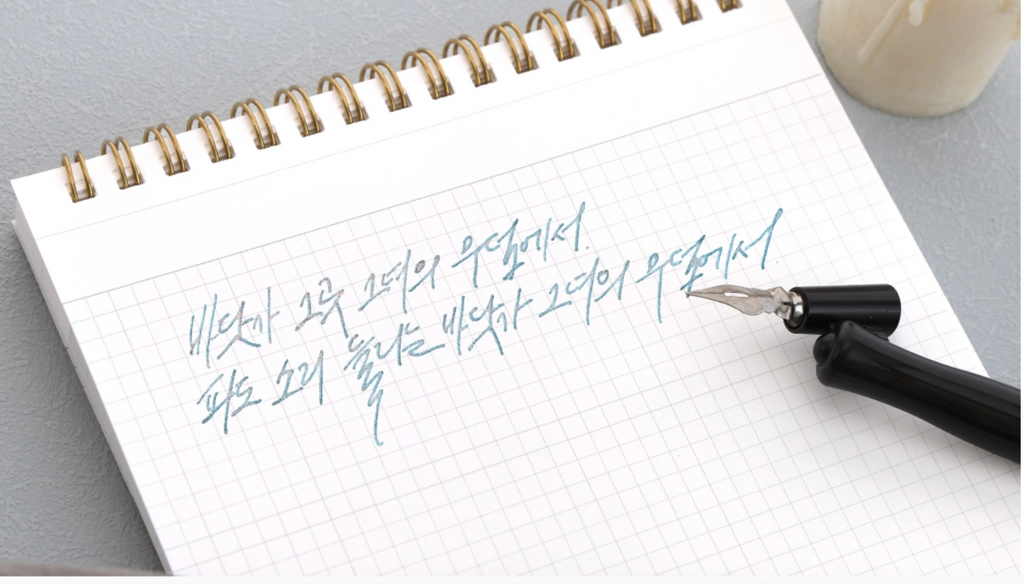 바닷가 그곳 그녀의 무덤에서.
파도 소리 들리는 바닷가 그녀의 무덤에서